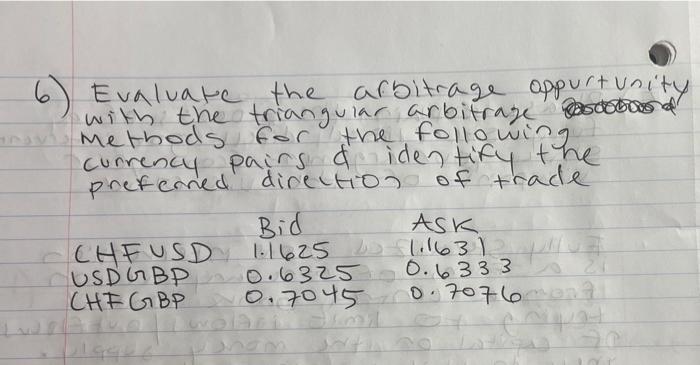 6) Evaluate the arbitrage oppurtunity
with the triangular arbitraze
methods for the following
currency pairs & identify the
preferred direction of trade
Bid ASK
CHFUSD 1.1625 1.1631
USDGBP 0.6325 0.6333
CHFGBP 0.7045 0.7076